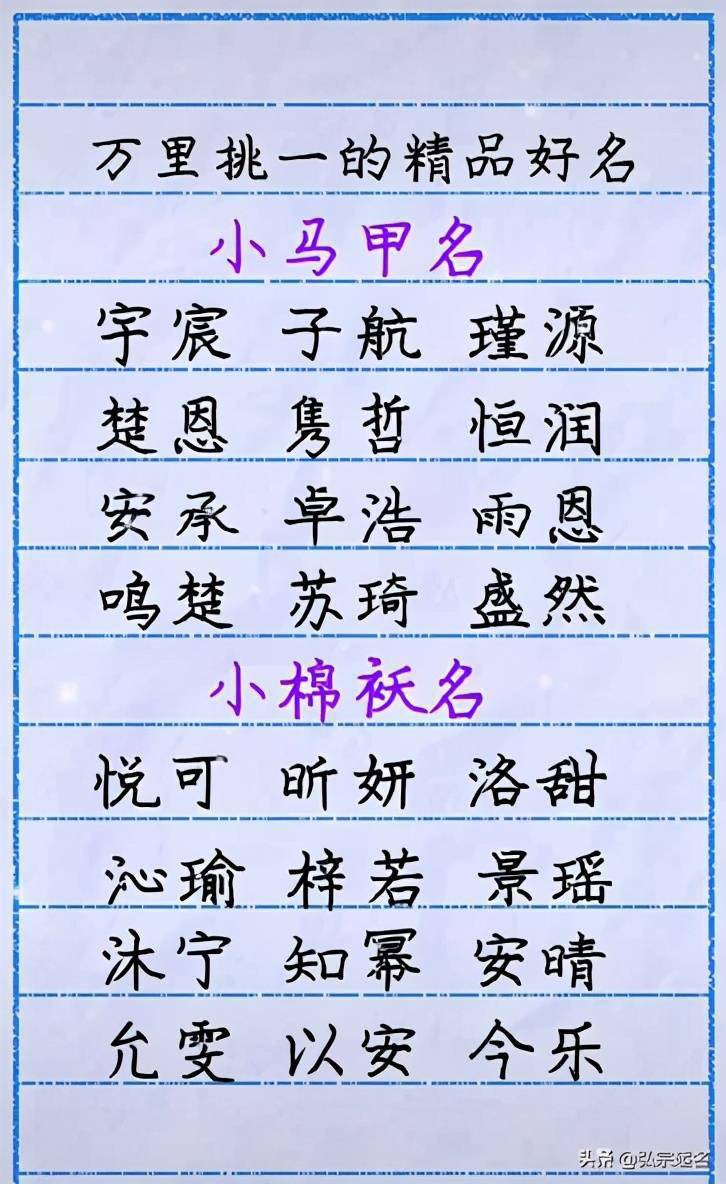 万里挑一的精品好名
小马甲名
宇宸 子航 瑾源
楚恩 隽哲 恒润
安承 卓浩 雨恩
鸣楚 苏琦 盛然
小棉袄名
悦可 昕妍 洛甜
沁瑜 梓若 景瑶
沐宁 知幂 安晴
允雯 以安 今乐
头条 @弘宗起名